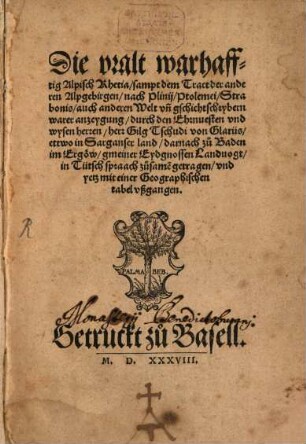 Die vralt warhaff-
tig Alpisch Rhetia / sampt dem Tract der ande
ren Alpgebirgen / nach Plinij / Ptolemei / Stra
bonis / auch anderen Welt vñ gschichtschrybern
warer anzeygung / durch den Ehrnuesten vnd
wysen herren / herr Gilg Tschudi von Glarus /
ettwo in Sarganser land / darnach zů Baden
im Ergöw / gmeiner Eydgnossen Landuogt /
in Tütsch spraach zůsamẽ getragen / vnd
yetz mit einer Geographischen
tabel vßgangen.
PALMA BEB.
Monasterij Benedictoburani
Getruckt zů Basell.
M. D. XXXVIII.